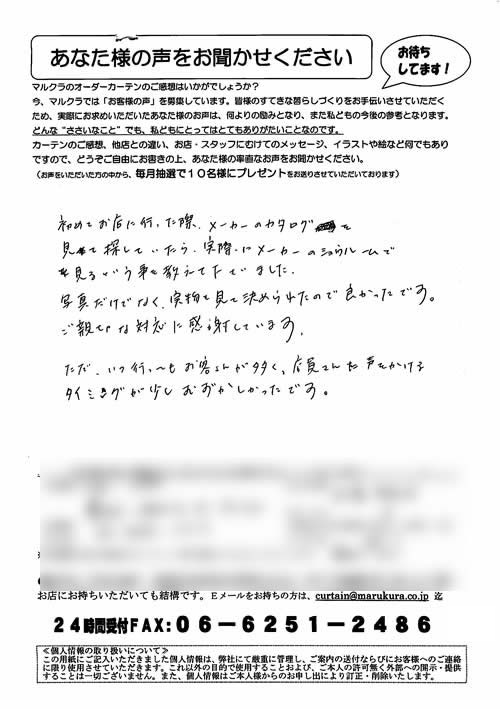 あなた様の声をお聞かせください
お待ち
してます!
マルクラのオーダーカーテンのご感想はいかがでしょうか?
今、マルクラでは「お客様の声」を募集しています。皆様のすてきな暮らしづくりをお手伝いさせていただく
ため、実際にお求めいただいたあなた様のお声は、何よりの励みとなり、また私どもの今後の参考となります。
どんな“ささいなこと”でも、私どもにとってはとてもありがたいことなのです。
カーテンのご感想、他店との違い、お店・スタッフにむけてのメッセージ、イラストや絵など何でもあり
ですので、どうぞご自由にお書きの上、あなた様の率直なお声をお聞かせください。
(お声をいただいた方の中から、毎月抽選で10名様にプレゼントをお送りさせていただいております)
初めてお店に行った際、メーカーのカタログを
見て探していたら、実際にメーカーのショウルームで
見るという事を教えて下さいました。
写真だけでなく、実物を見て決められたので良かったです。
ご親切な対応に感謝しています。
ただ、いつ行ってもお客さんが多く、店員さんに声をかける
タイミングが少しむずかしかったです。
お店にお持ちいただいても結構です。Eメールをお持ちの方は、curtain@marukura.co.jp 迄
24時間受付FAX:06-6251-2486
≪個人情報の取り扱いについて≫
この用紙にご記入いただきました個人情報は、弊社にて厳重に管理し、ご案内の送付ならびにお客様へのご連絡
に限り使用させていただきます。これ以外の目的で使用することおよび、ご本人の許可無く外部への開示・提供
することは一切ございません。また、個人情報はご本人様からのお申し出により訂正・削除いたします。